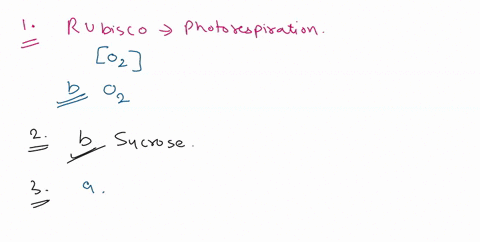 1. Rubisco → Photorespiration.
[O₂]
b O₂
2. b Sucrose.
3. a.